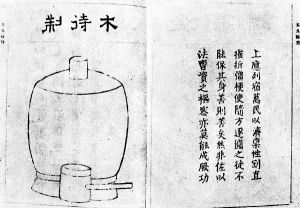 上應列宿萬民以濟稟性剛直
摧折彊梗使隨方逐圓之徒不
能保其身善則善矣然非佐以
法曹資之樞密亦莫能成厥功
木待制